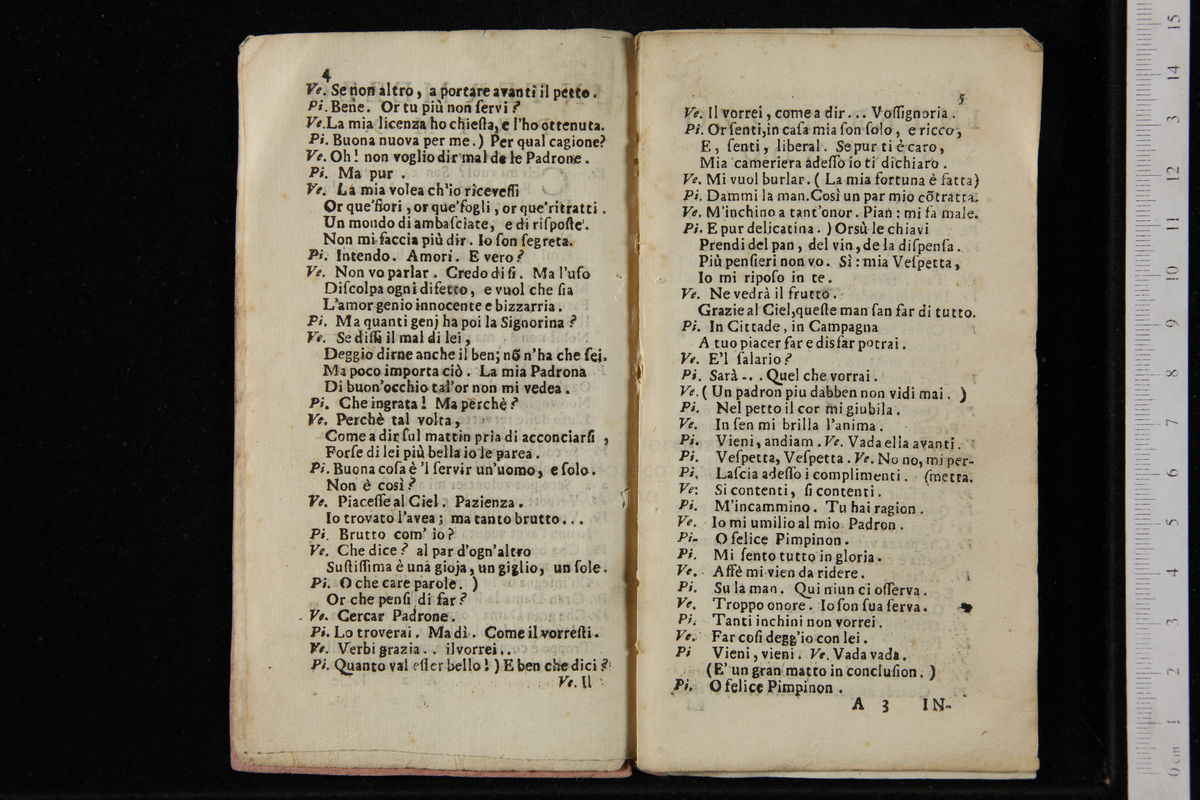 4
Ve. Se non altro, a portare avanti il petto.
Pi. Bene. Or tu più non ſervi?
Ve. La mia licenza ho chieſta, e l'ho ottenuta.
Pi. Buona nuova per me.) Per qual cagione?
Ve. Oh! non voglio dir mal de le Padrone.
Pi. Ma pur.
Ve. La mia volea ch'io riceveſſi
Or que'fiori, or que'fogli, or que'ritratti.
Un mondo di ambaſciate, e di riſpoſte.
Non mi faccia più dir. Io ſon ſegreta.
Pi. Intendo. Amori. E vero?
Ve. Non vo parlar. Credo di ſi. Ma l'uſo
Diſcolpa ogni difetto, e vuol che ſia
L'amor genio innocente e bizzarria.
Pi. Ma quanti genj ha poi la Signorina?
Ve. Se diſſi il mal di lei,
Deggio dirne anche il ben; nõ n'ha che ſei.
Ma poco importa ciò. La mia Padrona
Di buon'occhio tal'or non mi vedea.
Pi. Che ingrata! Ma perchè?
Ve. Perchè tal volta,
Come a dir ſul mattin pria di acconciarſi,
Forſe di lei più bella io le parea.
Pi. Buona coſa è 'l ſervir un'uomo, e ſolo.
Non è così?
Ve. Piaceſſe al Ciel. Pazienza.
Io trovato l'avea; ma tanto brutto...
Pi. Brutto com' io?
Ve. Che dice? al par d'ogn'altro
Suſtiſſima è una gioja, un giglio, un ſole.
Pi. O che care parole. )
Or che penſi di far?
Ve. Cercar Padrone.
Pi. Lo troverai. Ma dì. Come il vorreſti.
Ve. Verbi grazia.. il vorrei..
Pi. Quanto val eſſer bello! ) E ben che dici?
Ve. Il
5
Ve. Il vorrei, come a dir... Voſſignoria.
Pi. Or ſenti, in caſa mia ſon ſolo, e ricco,
E, ſenti, liberal. Se pur ti è caro,
Mia cameriera adeſſo io ti dichiaro.
Ve. Mi vuol burlar. ( La mia fortuna è fatta)
Pi. Dammi la man. Così un par mio cõtratta.
Ve. M'inchino a tant'onor. Pian: mi fa male.
Pi. E pur delicatina. ) Orsù le chiavi
Prendi del pan, del vin, de la diſpenſa.
Più penſieri non vo. Sì: mia Veſpetta,
Io mi ripoſo in te.
Ve. Ne vedrà il frutto.
Grazie al Ciel, queſte man ſan far di tutto.
Pi. In Cittade, in Campagna
A tuo piacer far e disfar potrai.
Ve. E'l ſalario?
Pi. Sarà... Quel che vorrai.
Ve. ( Un padron piu dabben non vidi mai. )
Pi. Nel petto il cor mi giubila.
Ve. In ſen mi brilla l'anima.
Pi. Vieni, andiam. Ve. Vada ella avanti.
Pi. Veſpetta, Veſpetta. Ve. No no, mi per-
Pi. Laſcia adeſſo i complimenti. (metta.
Ve: Si contenti, ſi contenti.
Pi. M'incammino. Tu hai ragion.
Ve. Io mi umilio al mio Padron.
Pi- O felice Pimpinon.
Pi. Mi ſento tutto in gloria.
Ve. Affè mi vien da ridere.
Pi. Su la man. Qui niun ci oſſerva.
Ve. Troppo onore. Io ſon ſua ſerva.
Pi. Tanti inchini non vorrei.
Ve. Far coſi degg'io con lei.
Pi Vieni, vieni. Ve. Vada vada.
(E' un gran matto in concluſion. )
Pi. O felice Pimpinon.
A 3 IN-